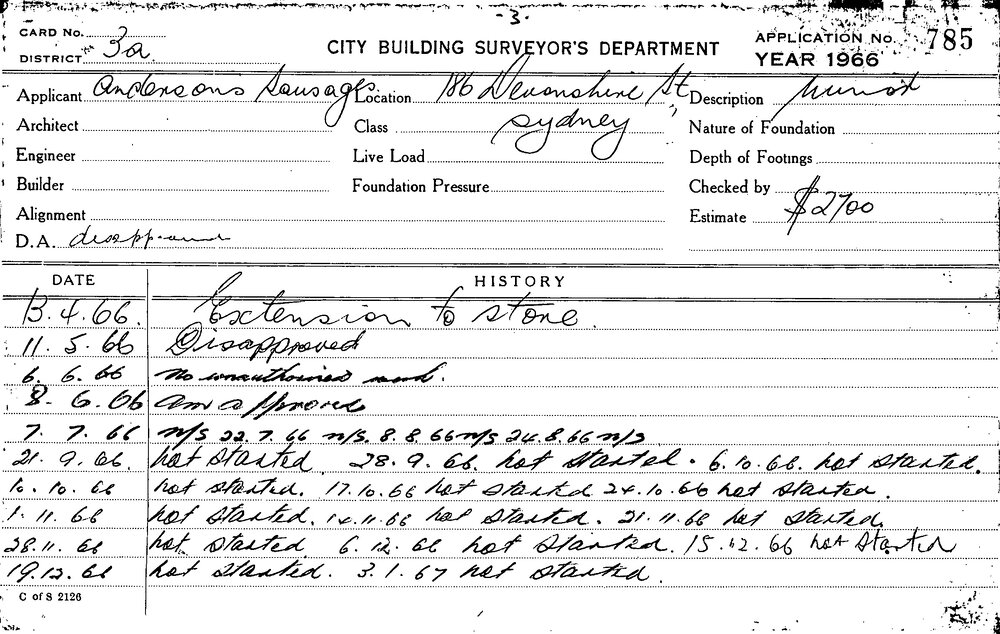 - 3 -
CARD No. 3a
DISTRICT
CITY BUILDING SURVEYOR'S DEPARTMENT
APPLICATION No. 785
YEAR 1966
Applicant Andersons Sausages Location 186 Devonshire St Description
Architect Class Sydney Nature of Foundation
Engineer Live Load Depth of Footings
Builder Foundation Pressure Checked by
Alignment Estimate $2700
D.A. disapproved
DATE HISTORY
13.4.66. Extension to store.
11.5.66 Disapproved
6.6.66 No unauthorised work.
8.6.66 Am approved
7.7.66 n/s 22.7.66 n/s. 8.8.66 n/s 24.8.66 n/s
21.9.66. not started. 28.9.66. not started. 6.10.66. not started.
10.10.66 not started. 17.10.66 not started 24.10.66 not started.
1.11.66 not started. 14.11.66 not started. 21.11.66 not started.
28.11.66 not started. 6.12.66 not started. 15.12.66 not started
19.12.66 not started. 3.1.67 not started.
C of S 2126